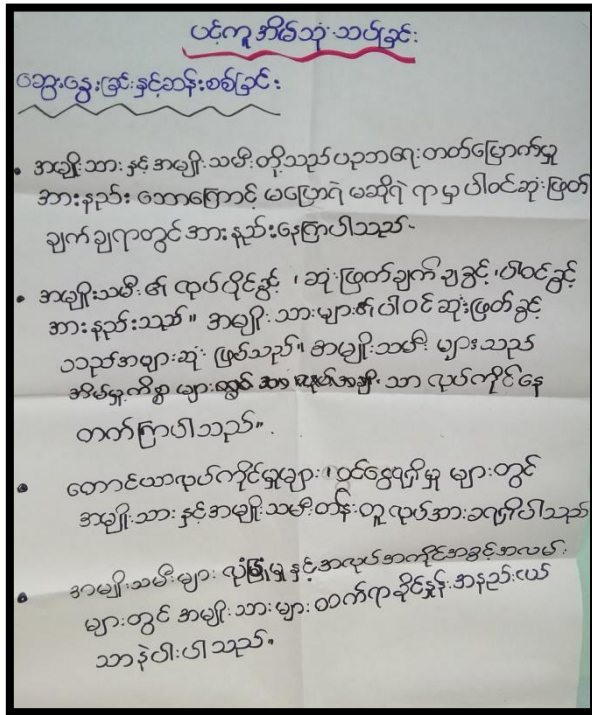 ပင့်ကူအိမ်သုံးသပ်ခြင်း
ဆွေးနွေးခြင်းနှင့်ဆန်းစစ်ခြင်း
• အမျိုးသားနှင့်အမျိုးသမီးတို့သည်ပညာရေးတတ်မြောက်မှု
အားနည်းသောကြောင့် မပြောရဲ မဆိုရဲ ရာမှ ပါဝင်ဆုံးဖြတ်
ချက်ချရာတွင်အားနည်းနေကြပါသည်-
• အမျိုးသမီး၏ လုပ်ပိုင်ခွင့် ၊ ဆုံးဖြတ်ချက်ချခွင့် ၊ ပါဝင်ခွင့်
အားနည်းသည်။ အမျိုးသားများ၏ပါဝင်ဆုံးဖြတ်ခွင့်
သည်အများဆုံး ဖြစ်သည်။ အမျိုးသမီး များသည်
အိမ်မှုကိစ္စ များတွင် သာ လုပ်ကိုင်နေ
တက်ကြပါသည်။
• တောင်ယာလုပ်ကိုင်မှုများ ၊ ဝင်ငွေရရှိမှု များတွင်
အမျိုးသားနှင့်အမျိုးသမီးတန်းတူလုပ်အားခရရှိပါသည်
• အမျိုးသမီးများ လုံခြုံမှုနှင့်အလုပ်အကိုင်အခွင့်အလမ်း
များတွင် အမျိုးသားများ ထက်ရာခိုင်နှုန်းအနည်းငယ်
သာနဲပါးပါသည်။